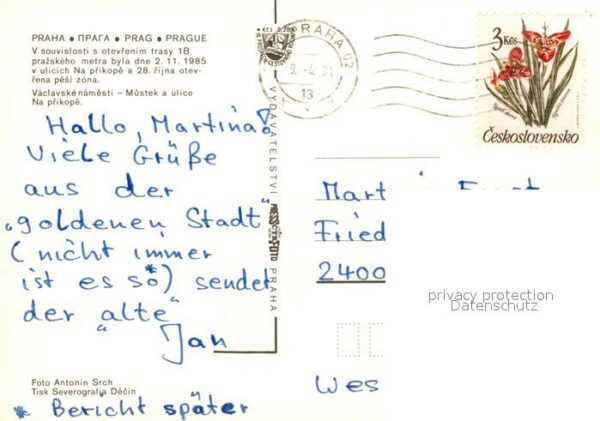 PRAHA • ПРАГА • PRAG • PRAGUE
V souvislosti s otevřením trasy 1B
pražského metra byla dne 2. 11. 1985
v ulicích Na příkopě a 28. října otev-
řena pěší zóna.
Václavské náměstí – Můstek a ulice
Na příkopě.
Hallo, Martina!
Viele Grüße
aus der
„goldenen Stadt"
(nicht immer
ist es so*) sendet
der „alte"
Jan
Foto Antonín Srch
Tisk Severografia Děčín
* Bericht später
Kčs 0,70
VYDAVATELSTVÍ PRESSFOTO PRAHA
PRAHA 02
13
3 Kčs
Československo
Fried
2400
privacy protection
Datenschutz
Wes